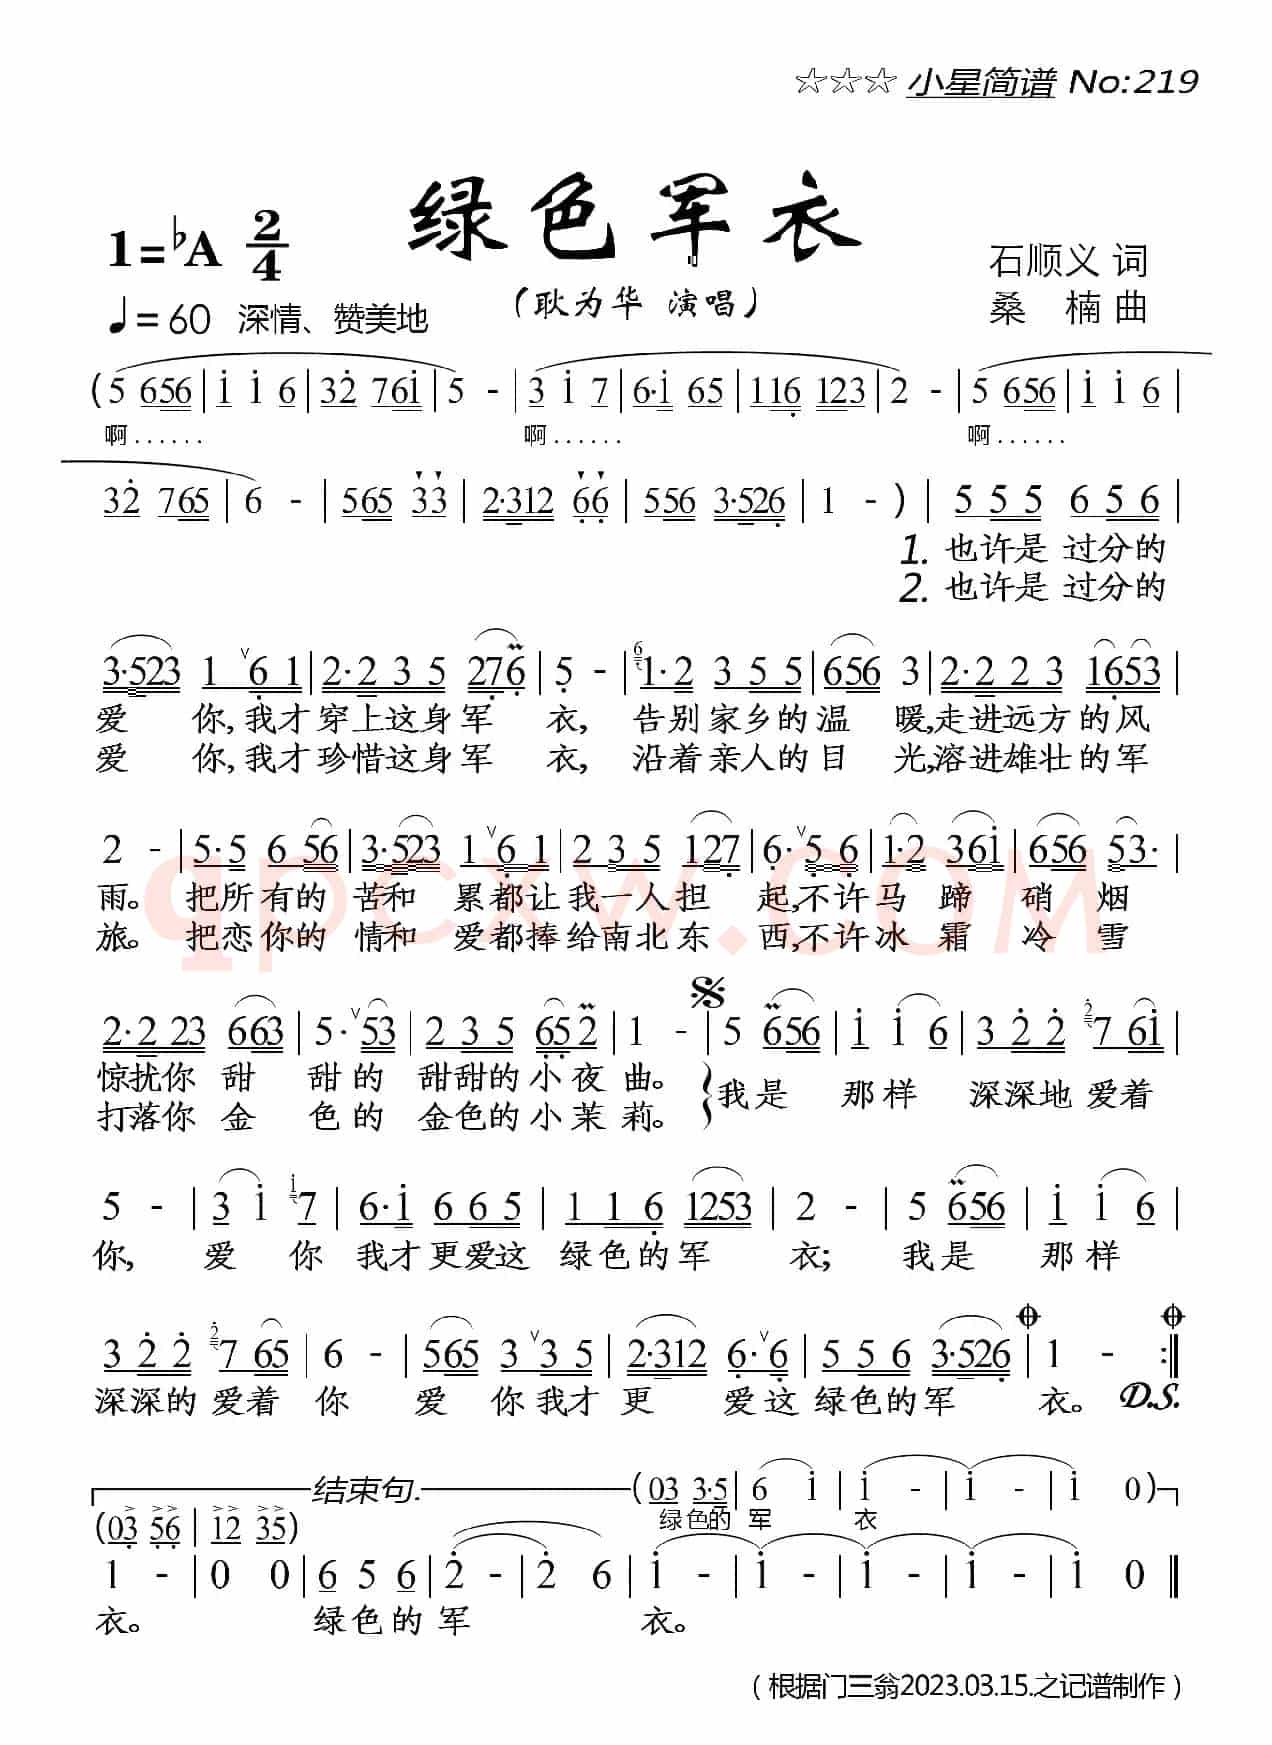 ☆☆☆ 小星简谱 No:219
绿色军衣
1=♭A 2/4
石顺义 词
(耿为华 演唱)
桑 楠 曲
♩=60 深情、赞美地
(5 656 | i i 6 | 32 76i | 5 - | 3 i 7 | 6·i 65 | 116 123 | 2 - | 5 656 | i i 6 |
啊...... 啊...... 啊......
32 765 | 6 - | 565 33 | 2·312 66 | 556 3·526 | 1 - ) | 5 5 5 6 5 6 |
1. 也许是 过分的
2. 也许是 过分的
3·523 1 6 1 | 2·2 3 5 276 | 5 - | 6 1·2 3 5 5 | 656 3 | 2·2 2 3 1653 |
爱 你,我才穿上这身军 衣, 告别家乡的温 暖,走进远方的风
爱 你,我才珍惜这身军 衣, 沿着亲人的目 光,溶进雄壮的军
2 - | 5·5 6 56 | 3·523 1 6 1 | 2 3 5 127 | 6·5 6 | 1·2 36i | 656 53· |
雨。 把所有的 苦和 累都让我一人担 起,不许马 蹄 硝 烟
旅。 把恋你的 情和 爱都捧给南北东 西,不许冰 霜 冷 雪
qpcxw.com
2·2 23 663 | 5·53 | 2 3 5 652 | 1 - | 5 656 | i i 6 | 3 2 2 2 7 6i |
惊扰你 甜 甜的 甜甜的小夜曲。 我是 那样 深深地 爱着
打落你 金 色的 金色的小茉莉。
5 - | 3 i i 7 | 6·i 6 6 5 | 1 1 6 1253 | 2 - | 5 656 | i i 6 |
你, 爱 你 我才更爱这 绿色的军 衣; 我是 那样
3 2 2 2 7 65 | 6 - | 565 3 3 5 | 2·312 6·6 | 5 5 6 3·526 | 1 - :‖
深深的 爱着 你 爱 你我才 更 爱这 绿色的军 衣。 D.S.
结束句. (03 3·5 | 6 i | i - | i - | i 0)
绿色的 军 衣
(03 56 | 12 35)
1 - | 0 0 | 6 5 6 | 2 - | 2 6 | i - | i - | i - | i - | i 0 ‖
衣。 绿色的 军 衣。
(根据门三翁2023.03.15.之记谱制作)